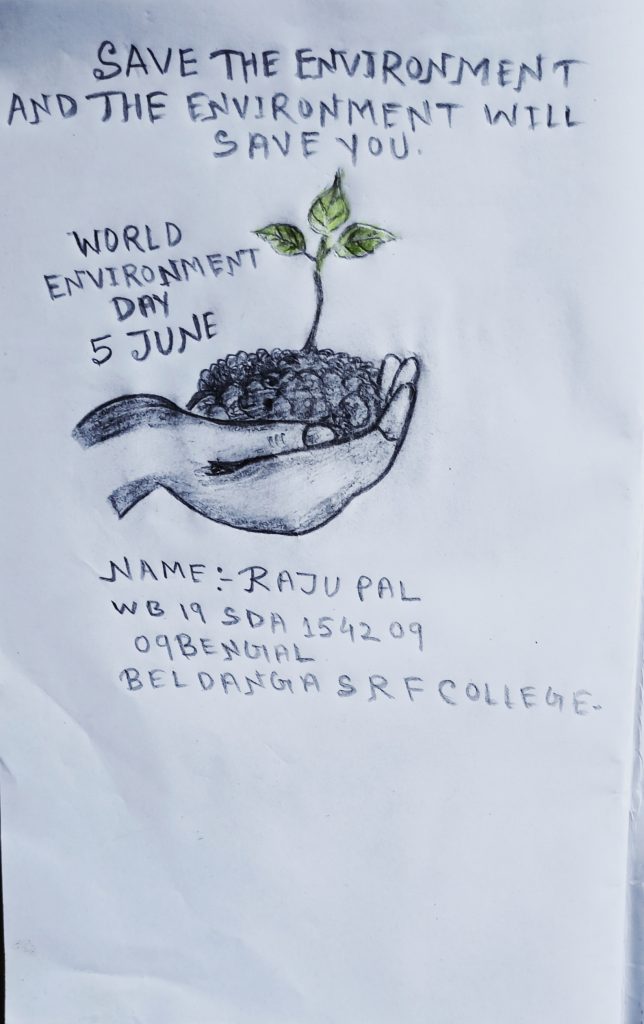 SAVE THE ENVIRONMENT
AND THE ENVIRONMENT WILL
SAVE YOU.
WORLD
ENVIRONMENT
DAY
5 JUNE
NAME:- RAJU PAL
WB 19 SDA 1542 09
09BENGAL
BELDANGA S R F COLLEGE-